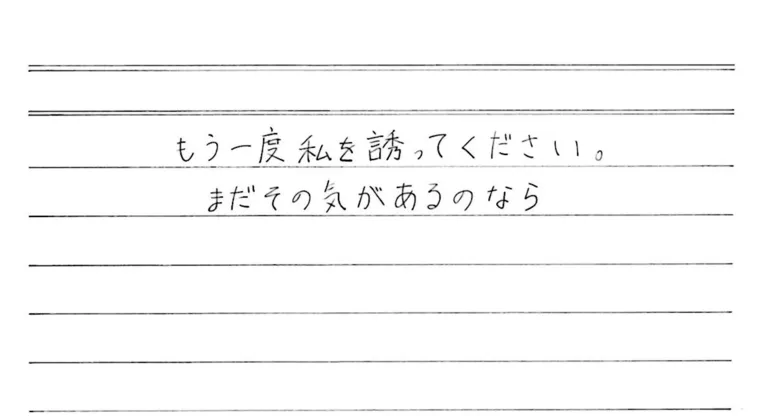 もう一度私を誘ってください。
まだその気があるのなら